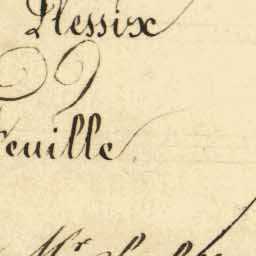 Plessix
Feuille
Mr